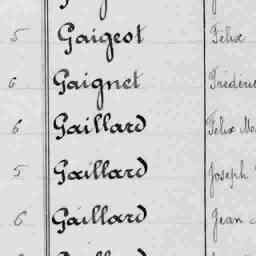 5 Gaigest Félix
6 Gaignet Frédéric
6 Gaillard Félix
5 Gaillard Joseph
6 Gaillard Jean